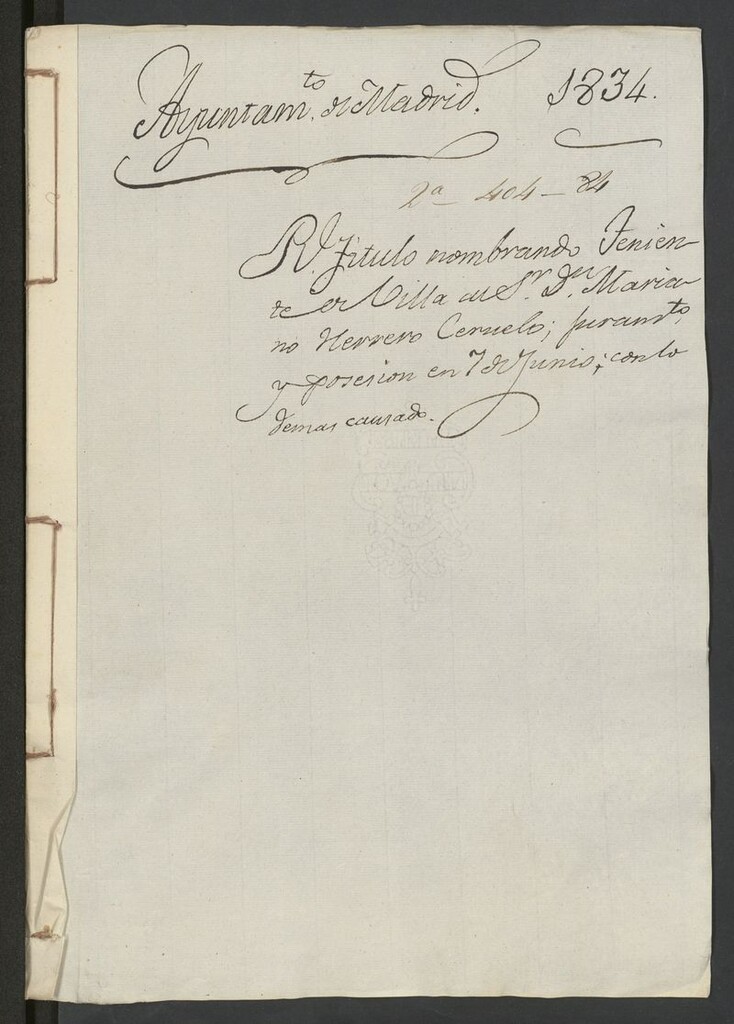 Ayuntam.to de Madrid. 1834.
2a - 404 - 84
Rl. Titulo nombrando Tenien-
te de Villa al Sr. Dn. Maria-
no Herrero Ceruelo; juramto,
y posesion en 7 de Junio; con lo
demas causado.